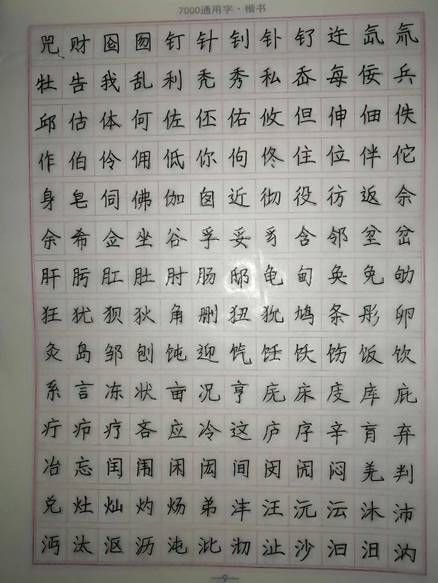 7000通用字·楷书
兕财囵囫钉针钊钋钌迕氙氚
牡告我乱利秃秀私岙每佞兵
邱估体何佐伾佑攸但伸佃佚
作伯伶佣低你佝佟住位伴佗
身皂伺佛伽囱近彻役彷返佘
余希佥坐谷孚妥豸含邻坌岔
肝肟肛肚肘肠邸龟甸奂免劬
狂犹狈狄角删狃狁鸠条彤卵
灸岛邹刨饨迎饩饪饫饬饭饮
系言冻状亩况亨庑床庋库庇
疔疖疗吝应冷这庐序辛肓弃
冶忘闰闱闲闳间闵闶闷羌判
兑灶灿灼炀弟沣汪沅沄沐沛
沔汰沤沥沌沘沏沚沙汩汨汭